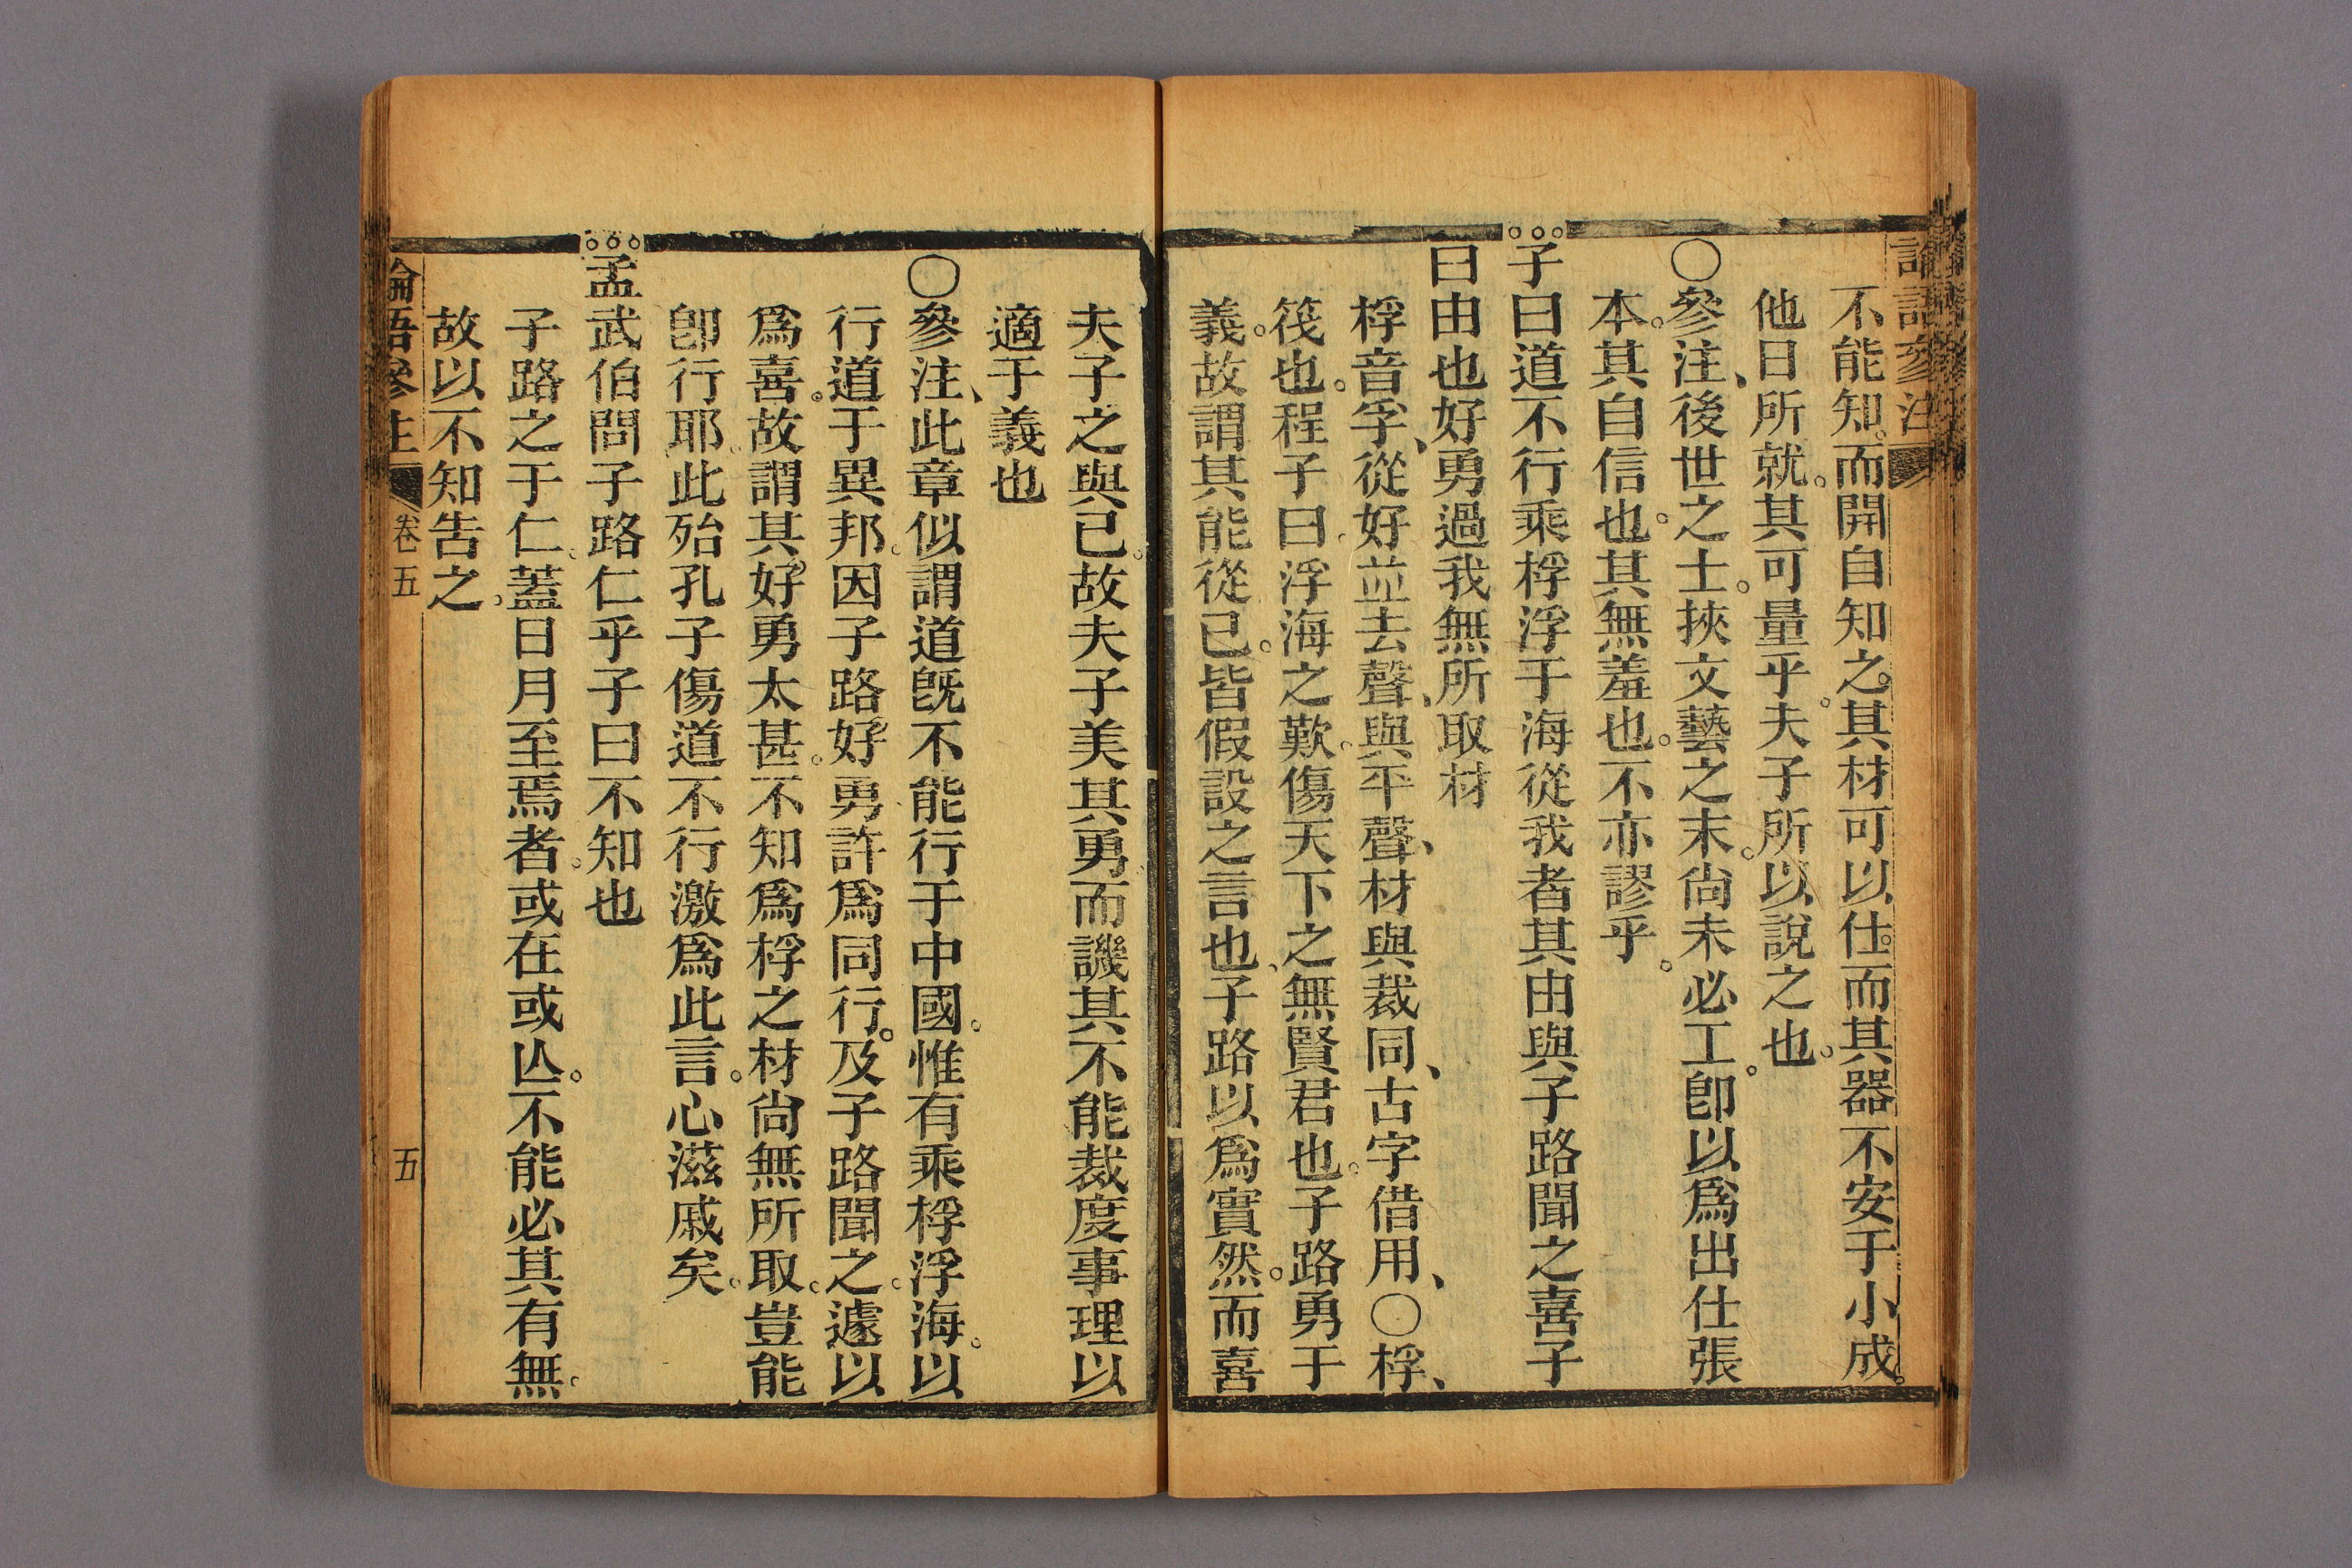 論語參注
不能知。而開自知之。其材可以仕。而其器不安于小成。
他日所就。其可量乎。夫子所以說之也。
○參注、後世之士。挾文藝之末。尙未必工。卽以爲出仕張
本。其自信也。其無羞也。不亦謬乎。
子曰道不行乘桴浮于海從我者其由與子路聞之喜子
曰由也好勇過我無所取材
桴音孚、從好並去聲、與平聲、材與裁同、古字借用、○桴、
筏也。程子曰。浮海之歎。傷天下之無賢君也。子路勇于
義。故謂其能從己。皆假設之言也、子路以爲實然。而喜
夫子之與己。故夫子美其勇。而譏其不能裁度事理以
適于義也
○參注、此章似謂道旣不能行于中國。惟有乘桴浮海。以
行道于異邦。因子路好勇許爲同行。及子路聞之。遽以
爲喜。故謂其好勇太甚。不知爲桴之材尙無所取。豈能
卽行耶。此殆孔子傷道不行激爲此言。心滋戚矣。
孟武伯問子路仁乎子曰不知也
子路之于仁。蓋日月至焉者。或在或亾。不能必其有無。
故以不知告之。
論語參注 卷五 五